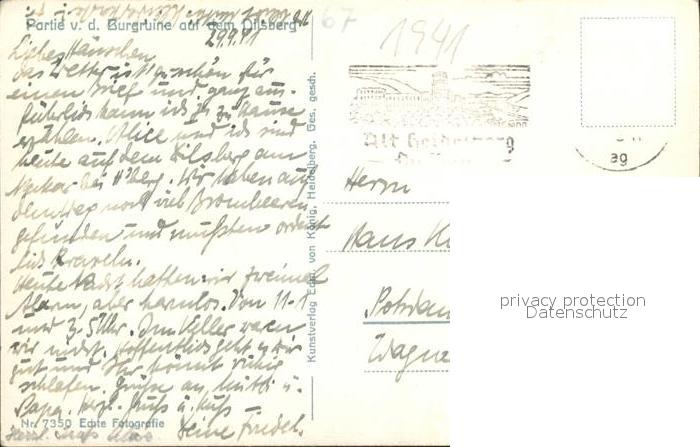 Partie v. d. Burgruine auf dem Dilsberg
29.9.41
Liebes Hänschen
das Wetter ist so schön für
einen Brief und ganz aus-
führlich kann ich Dir zu Hause
erzählen. Alice und ich sind
heute auf dem Dilsberg am
Neckar bei H'berg. Wir haben auf
dem Weg noch viel Brombeeren
gefunden und mußten ordent
lich kraxeln.
Heute Nacht hatten wir zweimal
Alarm, aber harmlos. Von 11-1
und 5 Uhr. Im Keller waren
wir nicht. Hoffentlich geht es Dir
gut und Ihr könnt ruhig
schlafen. Grüße an Mutti u.
Papa. Herzl. Gruß u. Kuß
Deine Friedel.
Nr. 7350 Echte Fotografie
Herzl. Gruß Alice
Kunstverlag Edm. von König, Heidelberg. Ges. gesch.
67
1941
Alt Heidelberg
ag
Herrn
Hans
Potsdam
Wagne
privacy protection
Datenschutz